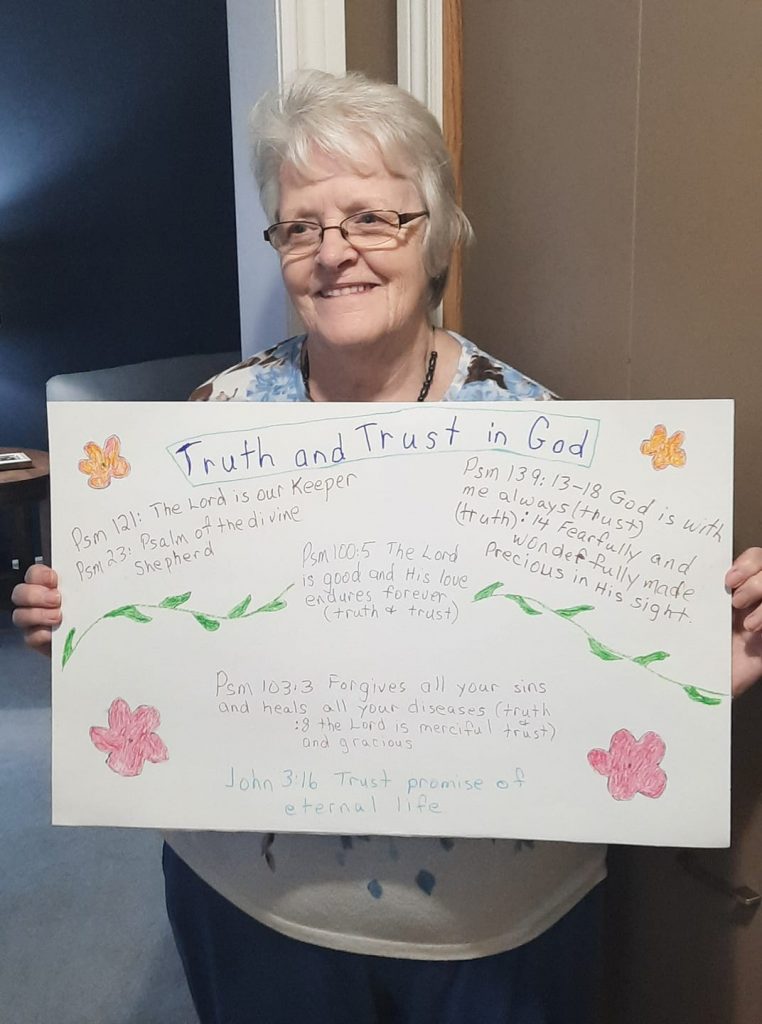 Truth and Trust in God
Psm 121: The Lord is our Keeper
Psm 23: Psalm of the divine
Shepherd
Psm 100:5 The Lord
is good and His love
endures forever
(truth & trust)
Psm 139:13-18 God is with
me always (trust)
(truth):14 Fearfully and
wonderfully made
Precious in His sight.
Psm 103:3 Forgives all your sins
and heals all your diseases (truth
:8 the Lord is merciful & trust)
and gracious
John 3:16 Trust promise of
eternal life